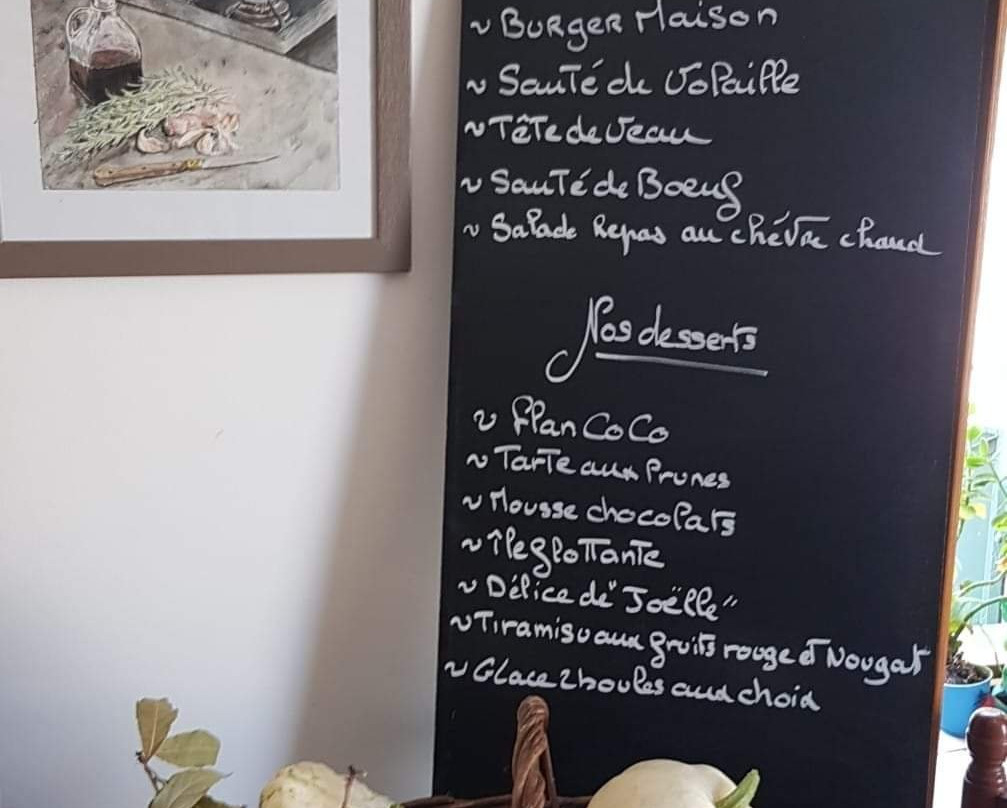 ~ Burger Maison
~ Sauté de Volaille
~ Tête de Veau
~ Sauté de Boeuf
~ Salade Repas au chévre chaud
Nos desserts
~ Flan CoCo
~ Tarte aux Prunes
~ Mousse chocolats
~ île flottante
~ Délice de "Joëlle"
~ Tiramisu aux fruits rouge et Nougat
~ Glace 2 boules aux choix